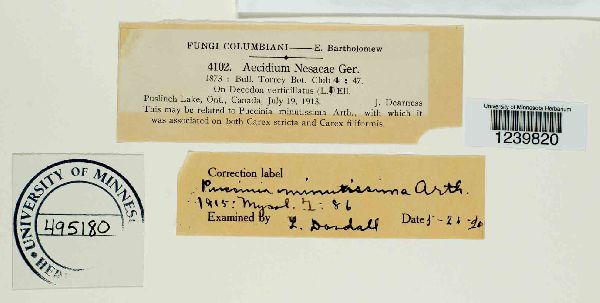 FUNGI COLUMBIANI—E. Bartholomew
4102. Aecidium Nesaeae Ger.
1873 : Bull. Torrey Bot. Club 4 : 47.
On Decodon verticillatus (L.) Ell.
Puslinch Lake, Ont., Canada, July 19, 1913. J. Dearness
This may be related to Puccinia minutissima Arth., with which it
was associated on both Carex stricta and Carex filiformis.
University of Minnesota Herbarium
1239820
UNIVERSITY OF MINNES
HER
495180
Correction label
Puccinia minutissima Arth.
1915: Mycol. 7: 86
Examined by L. Dosdall Date